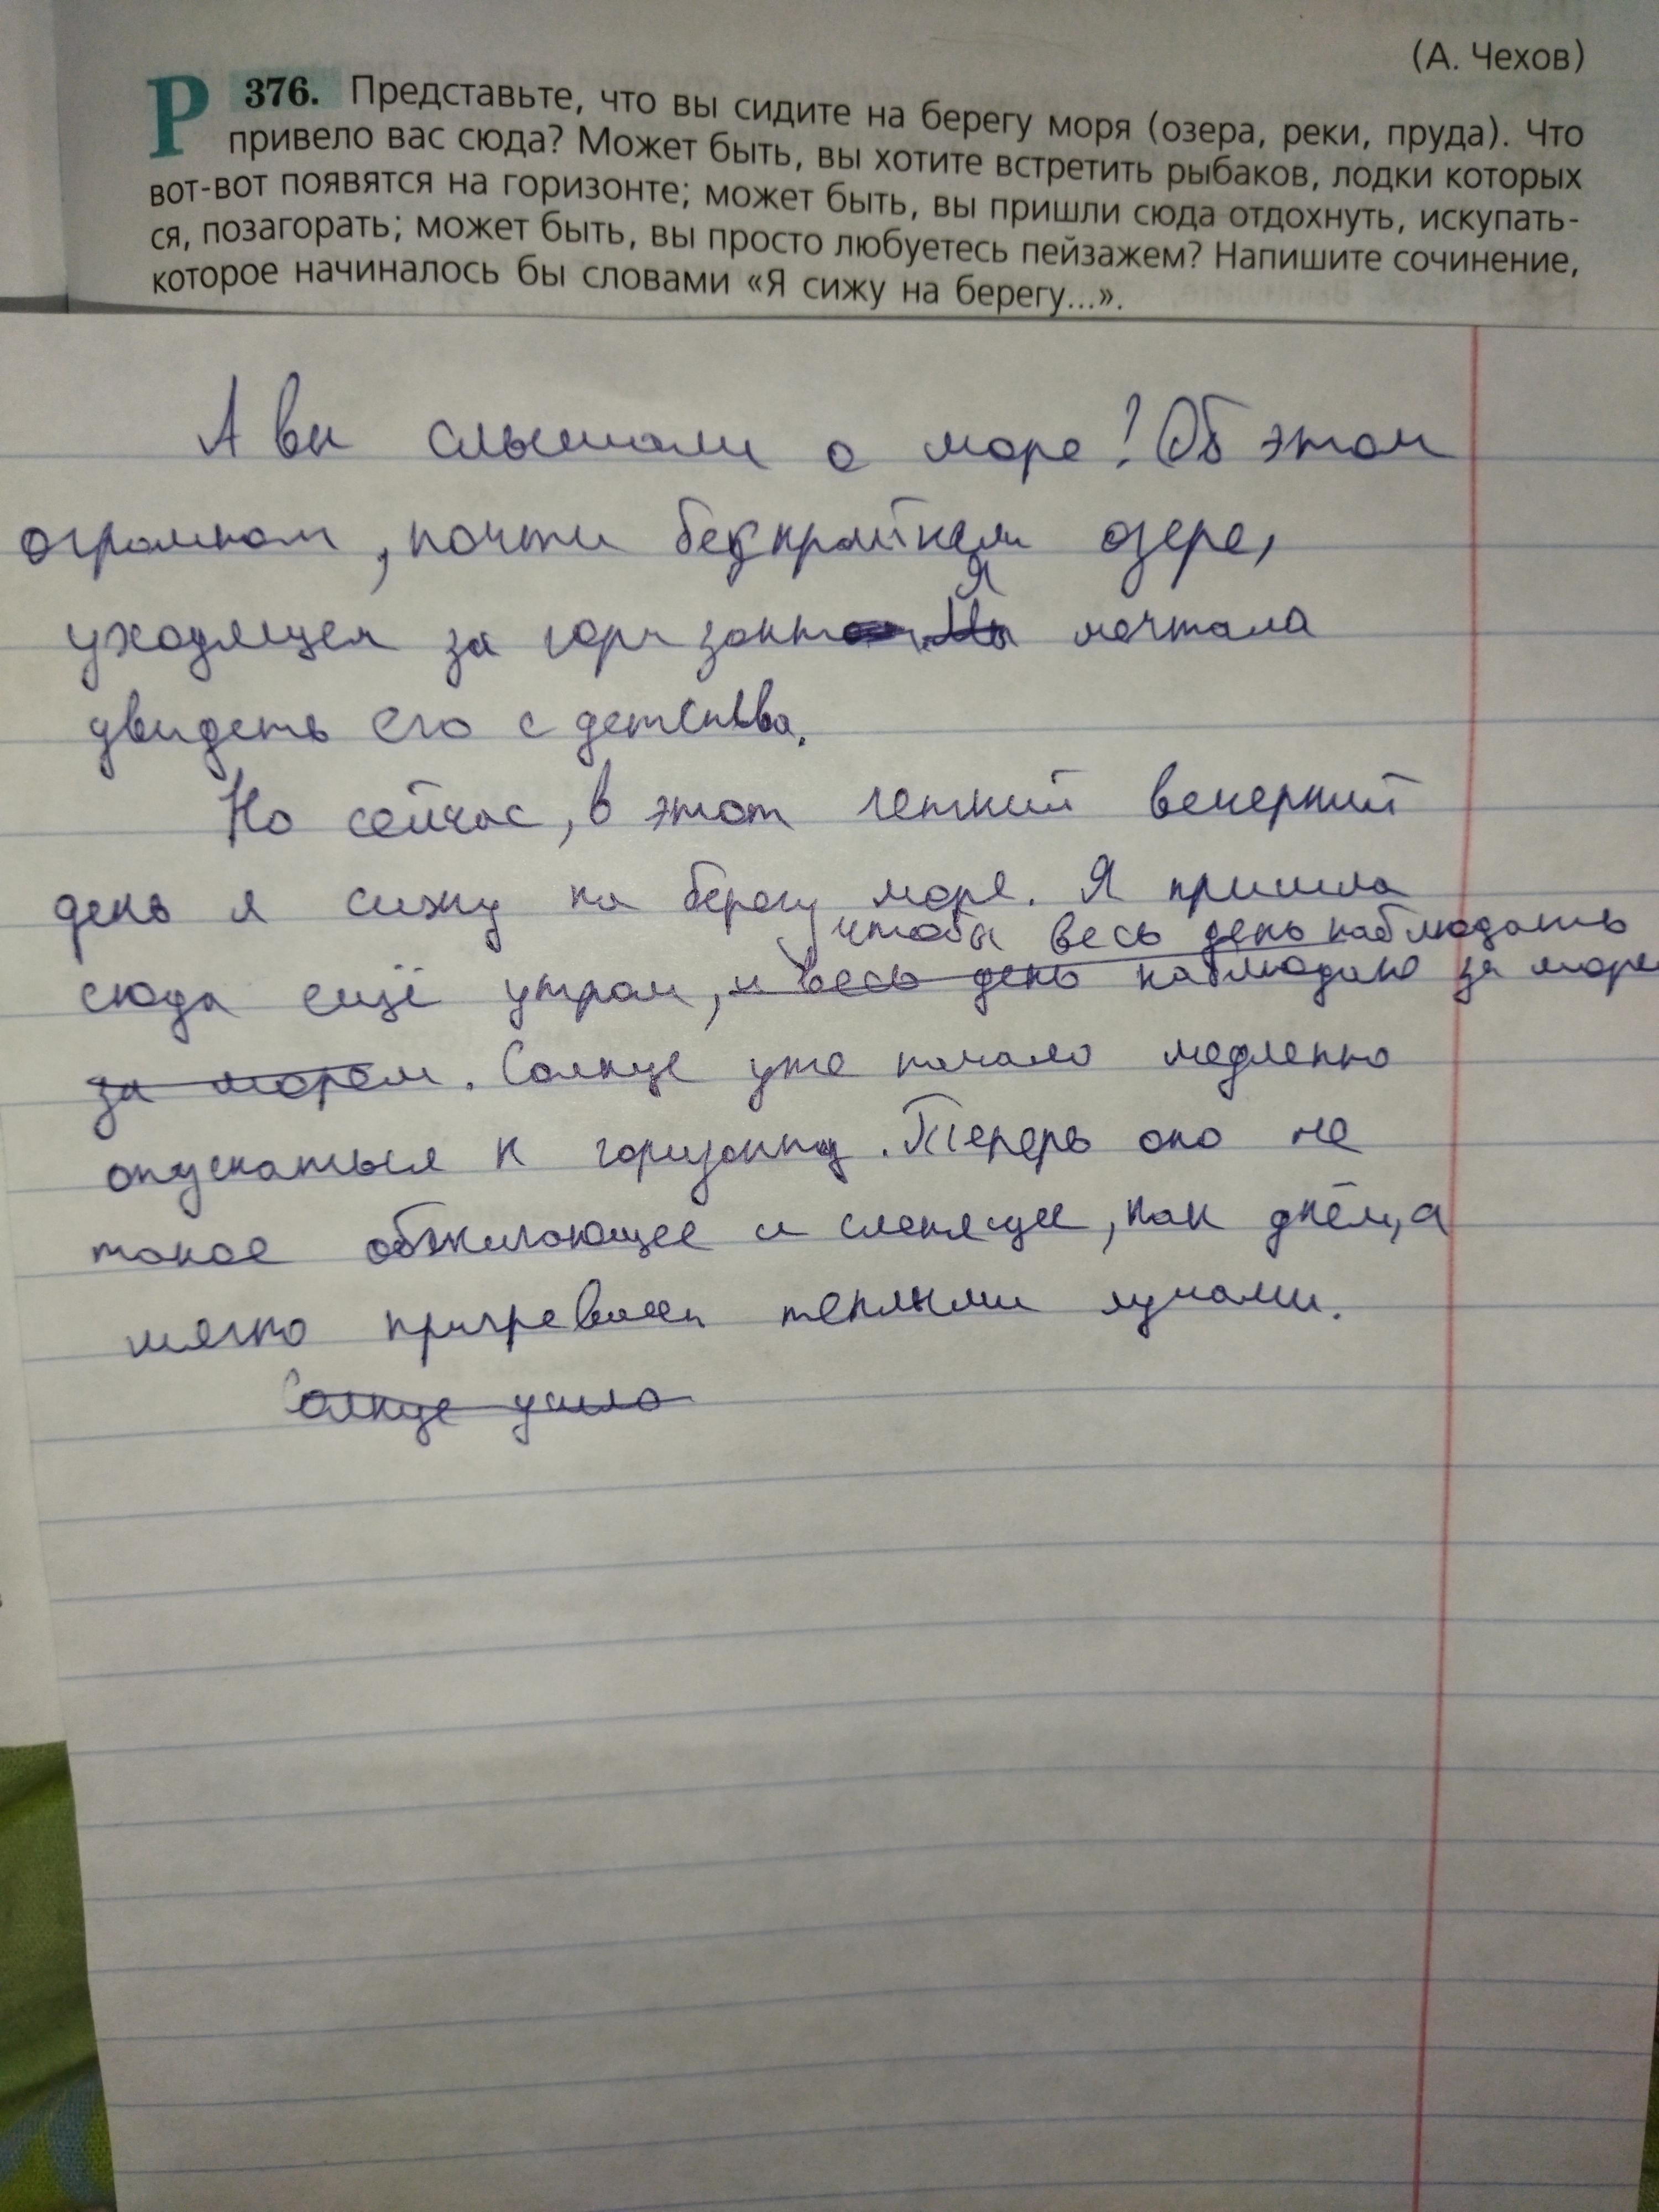 (А. Чехов)
Р 376. Представьте, что вы сидите на берегу моря (озера, реки, пруда). Что
привело вас сюда? Может быть, вы хотите встретить рыбаков, лодки которых
вот-вот появятся на горизонте; может быть, вы пришли сюда отдохнуть, искупать-
ся, позагорать; может быть, вы просто любуетесь пейзажем? Напишите сочинение,
которое начиналось бы словами «Я сижу на берегу...».
А вы слышали о море? Об этом
огромном, почти бескрайнем озере,
уходящем за горизонт. Я мечтала
увидеть его с детства.
Но сейчас, в этот летний вечерний
день я сижу на берегу моря. Я пришла
чтобы весь день наблюдать
сюда ещё утром, и весь день наблюдаю за морем
за морем. Солнце уже начало медленно
опускаться к горизонту. Теперь оно не
такое обжигающее и слепящее, как днём, а
мягко пригревает теплыми лучами.
Солнце ушло